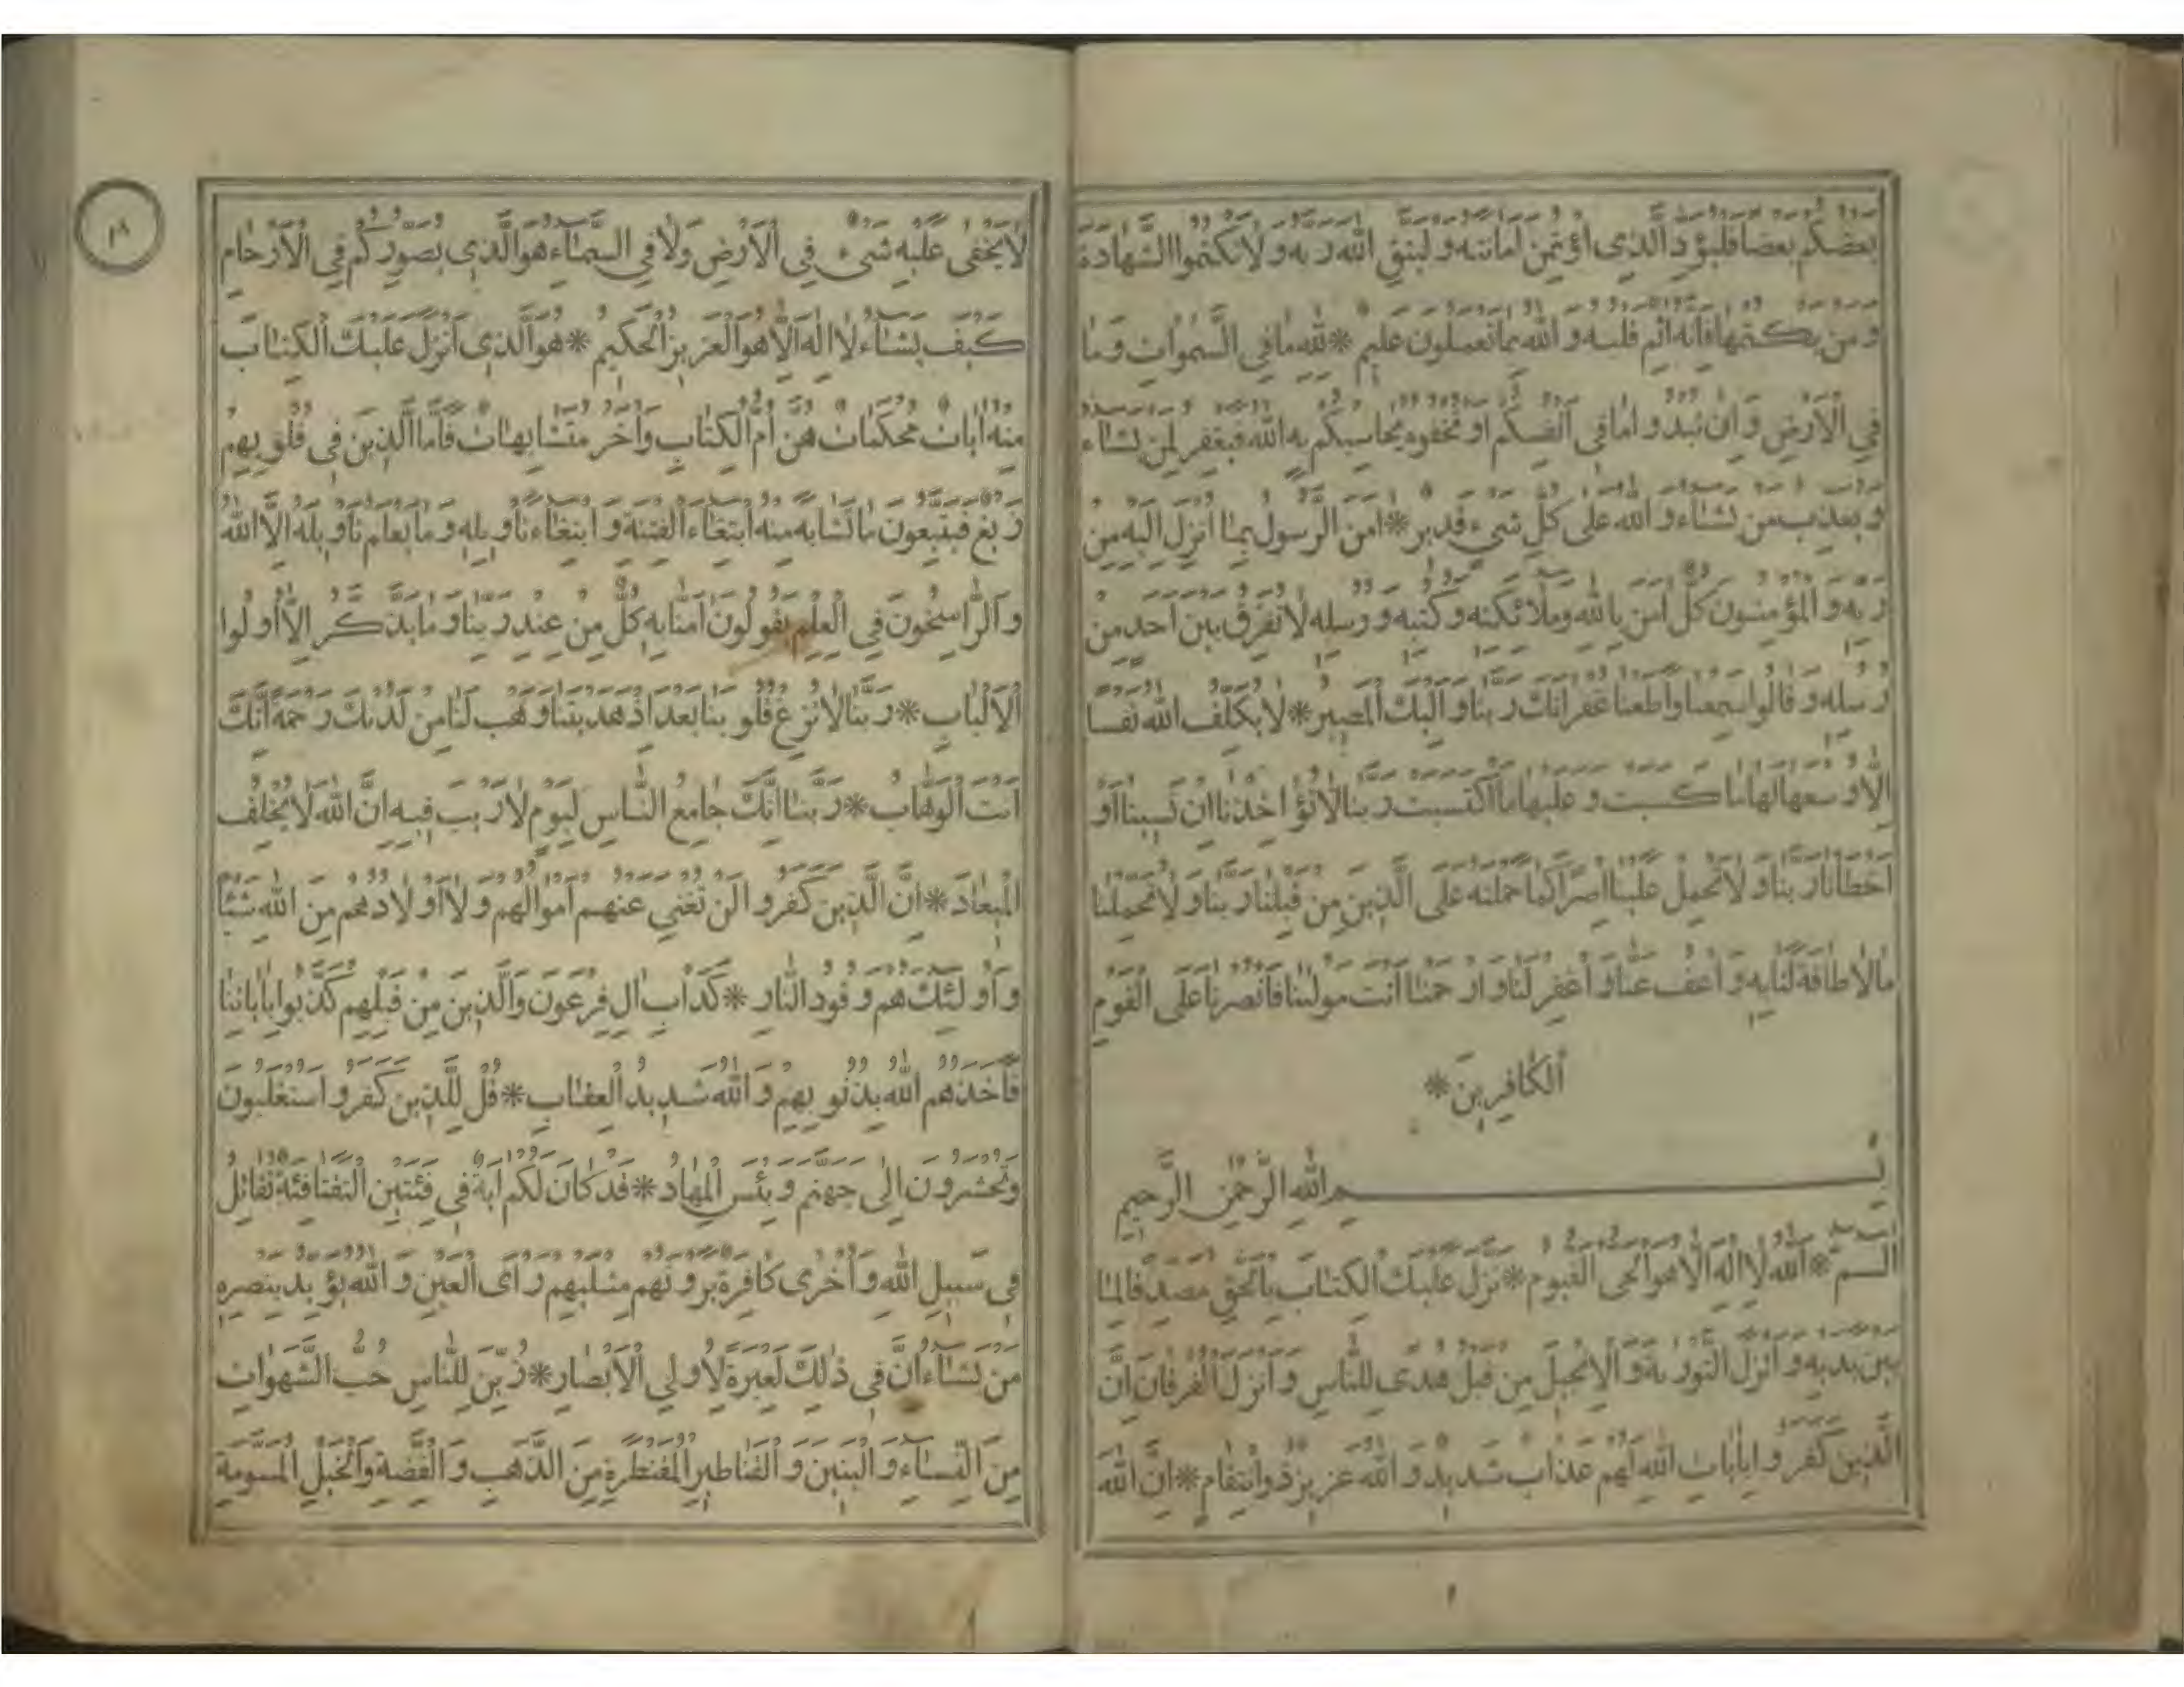 بعضكم بعضا فليؤد الذى اؤتمن امانته وليتق الله ربه ولا تكتموا الشهادة
ومن يكتمها فانه اثم قلبه والله بما تعملون عليم * لله ما في السموات وما
في الارض وان تبدوا ما في انفسكم او تخفوه يحاسبكم به الله فيغفر لمن يشاء
ويعذب من يشاء والله على كل شيء قدير * امن الرسول بما انزل اليه من
ربه والمؤمنون كل امن بالله وملائكته وكتبه ورسله لا نفرق بين احد من
رسله وقالوا سمعنا واطعنا غفرانك ربنا واليك المصير * لا يكلف الله نفسا
الا وسعها لها ما كسبت وعليها ما اكتسبت ربنا لا تؤاخذنا ان نسينا او
اخطانا ربنا ولا تحمل علينا اصرا كما حملته على الذين من قبلنا ربنا ولا تحملنا
ما لا طاقة لنا به واعف عنا واغفر لنا وارحمنا انت مولينا فانصرنا على القوم
الكافرين *
بسم الله الرحمن الرحيم
الم * الله لا اله الا هو الحى القيوم * نزل عليك الكتاب بالحق مصدقا لما
بين يديه وانزل التورية والانجيل من قبل هدى للناس وانزل الفرقان ان
الذين كفروا بايات الله لهم عذاب شديد والله عزيز ذو انتقام * ان الله
لا يخفى عليه شيء في الارض ولا في السماء هو الذي يصوركم في الارحام
كيف يشاء لا اله الا هو العزيز الحكيم * هو الذي انزل عليك الكتاب
منه ايات محكمات هن ام الكتاب واخر متشابهات فاما الذين في قلوبهم
زيغ فيتبعون ما تشابه منه ابتغاء الفتنة وابتغاء تاويله وما يعلم تاويله الا الله
والراسخون في العلم يقولون امنا به كل من عند ربنا وما يذكر الا اولوا
الالباب * ربنا لا تزغ قلوبنا بعد اذ هديتنا وهب لنا من لدنك رحمة انك
انت الوهاب * ربنا انك جامع الناس ليوم لا ريب فيه ان الله لا يخلف
الميعاد * ان الذين كفروا لن تغني عنهم اموالهم ولا اولادهم من الله شيئا
واولئك هم وقود النار * كداب ال فرعون والذين من قبلهم كذبوا باياتنا
فاخذهم الله بذنوبهم والله شديد العقاب * قل للذين كفروا ستغلبون
وتحشرون الى جهنم وبئس المهاد * قد كان لكم اية في فئتين التقتا فئة تقاتل
في سبيل الله واخرى كافرة يرونهم مثليهم راى العين والله يؤيد بنصره
من يشاء ان في ذلك لعبرة لاولي الابصار * زين للناس حب الشهوات
من النساء والبنين والقناطير المقنطرة من الذهب والفضة والخيل المسومة